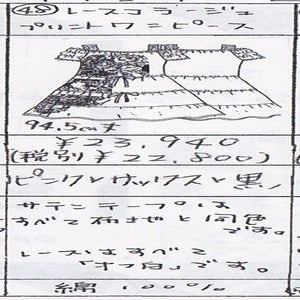 ㊺ レースコラージュ
プリントワンピース
94.5cm丈
¥23,940
(税別¥22,800)
ピンク、サックス、黒、
サテンテープは
すべて柄地と同色
です。
レースはすべて
「オフ白」です。
綿 100%